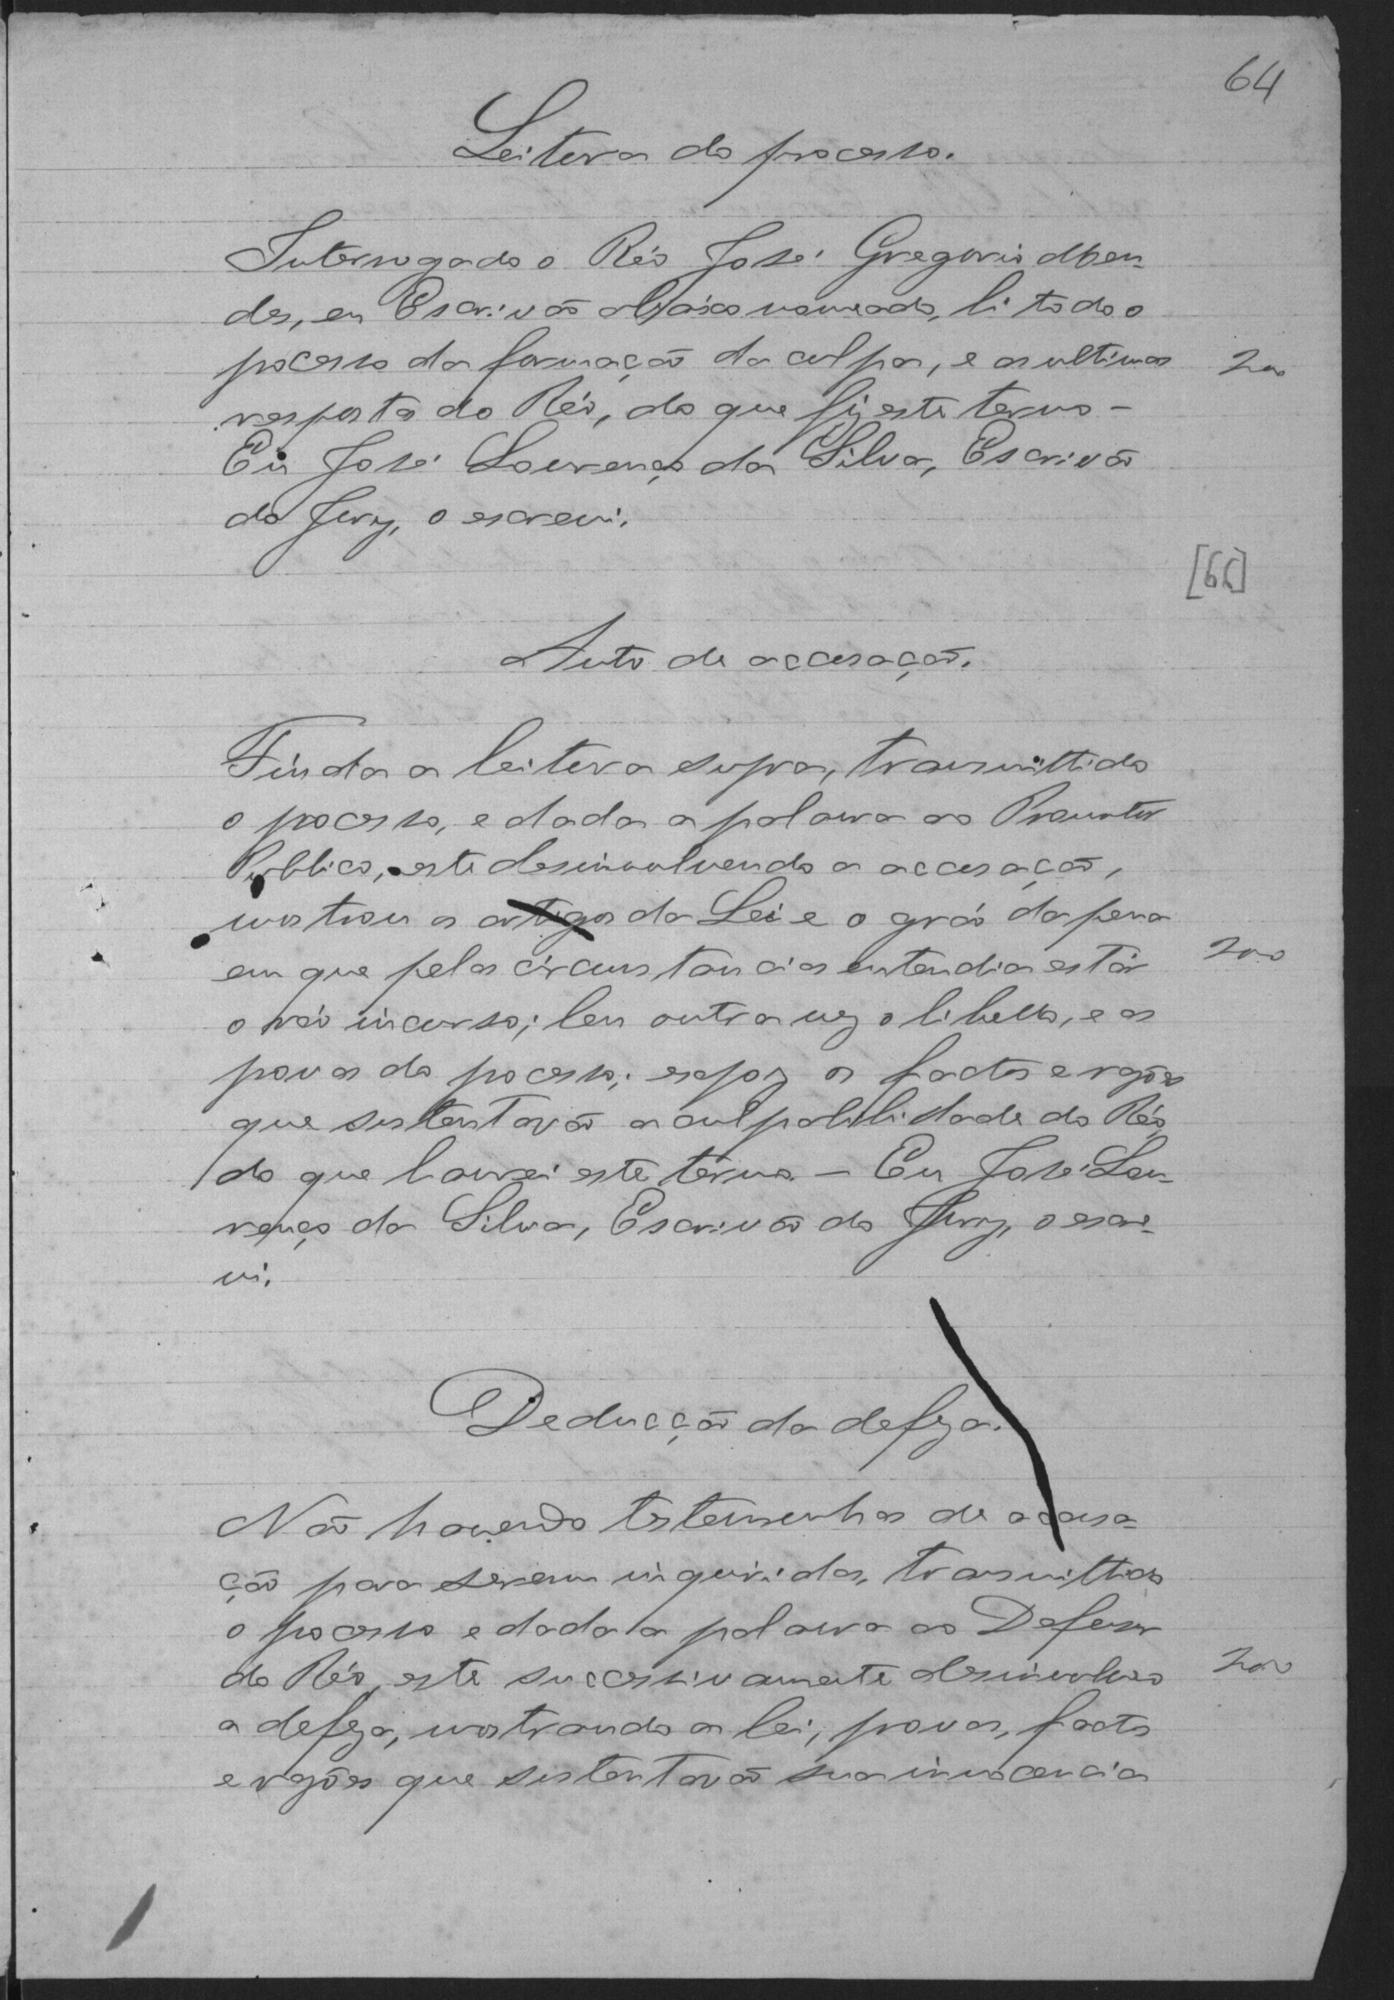 64
Leitura do processo.
Interrogado o Réo José Gregorio Men-
des, eu Escrivão abaixo nomeado, li todo o
pocesso da formação da culpa, e as ultimas
200
respostas do Réo, do que fiz este termo -
Eu José Lourenço da Silva, Escrivão
do Jury, o escrevi.
[66]
Auto de accusação.
Finda a leitura supra, transmittido
o pocesso, e dada a palavra ao Promotor
Publico, este desinvolvendo a accusação,
mostrou os artigos da Lei e o gráo da pena
em que pelas circunstancias entendia estár
200
o réo incurso; leu outra vez o libello, e as
provas do pocesso; expoz os factos e rasões
que sustentavão a culpabilidade do Réo,
do que lavrei este termo. - Eu José Lou-
renço da Silva, Escrivão do Jury, o escre-
vi.
Deducção da defeza.
Não havendo testemunhas de acusa-
ção para serem inquiridas, transmittido
o pocesso e dada a palavra ao Defensor
do Réo, este successivamente desinvolveo
200
a defeza, mostrando a lei, provas, factos
e rasões que sustentavão sua innocencia